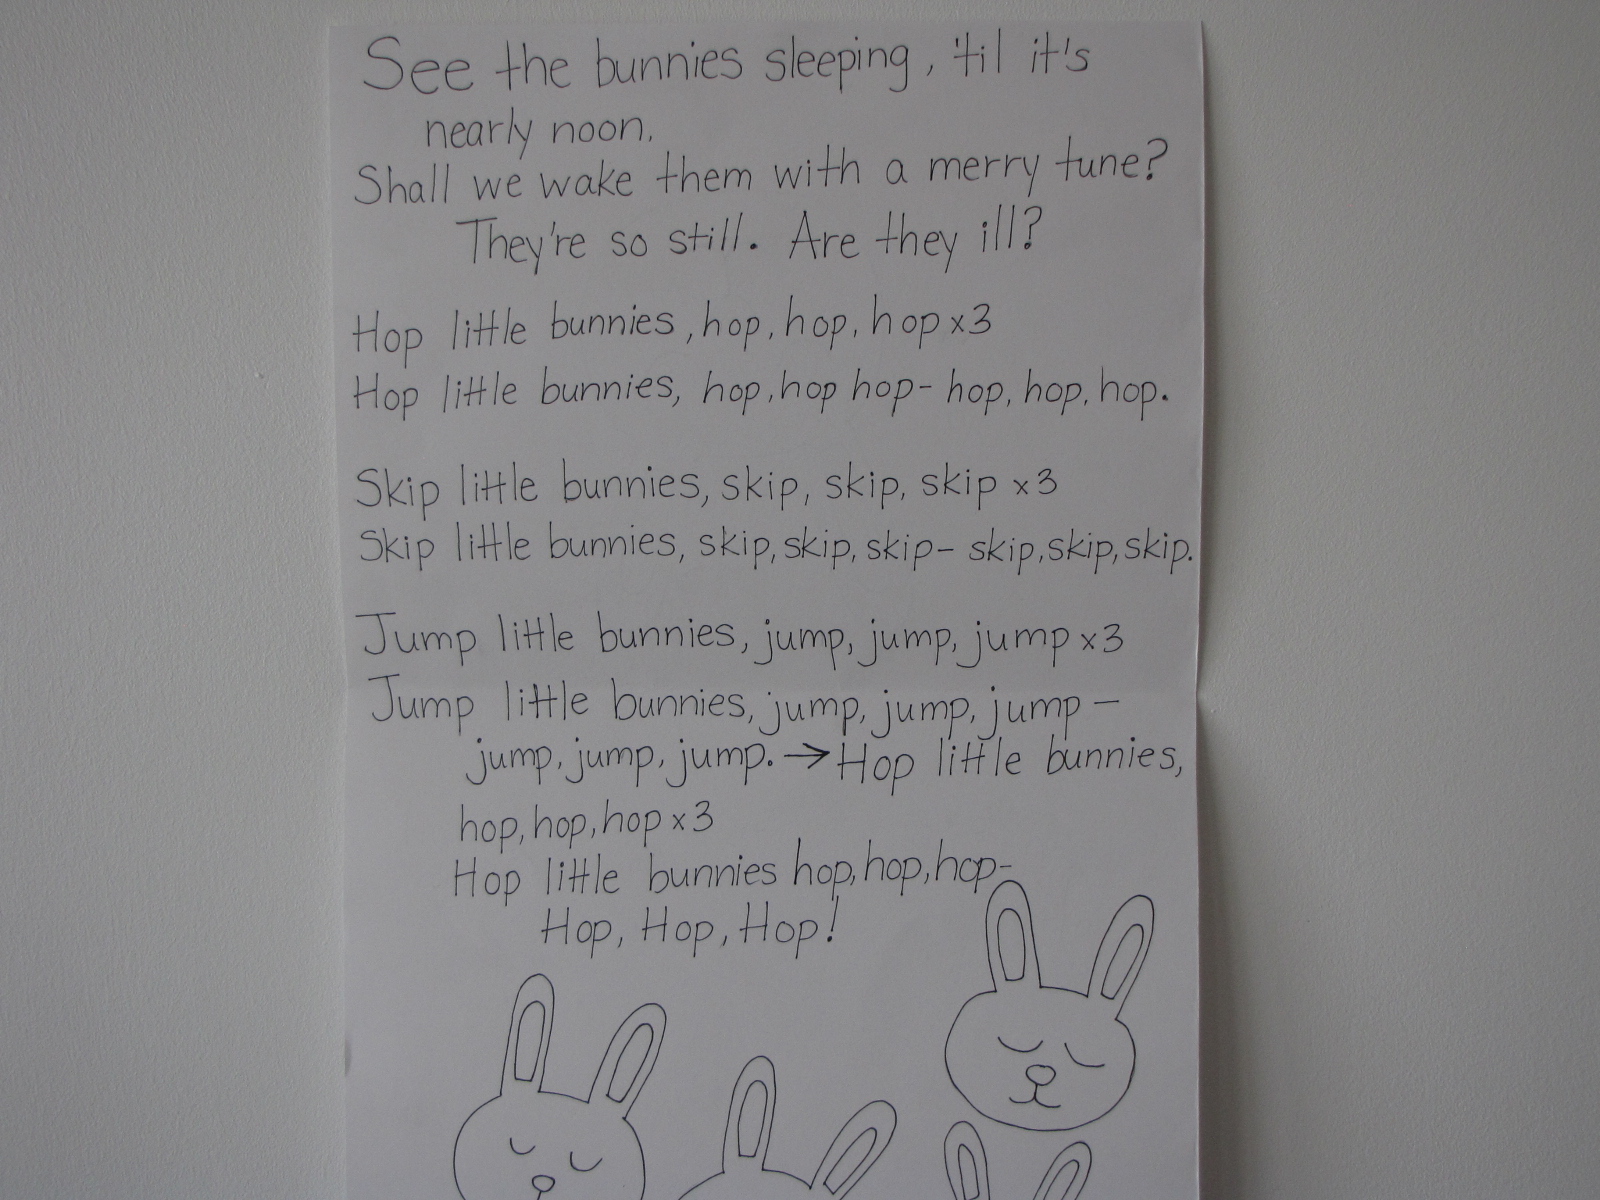 See the bunnies sleeping, 'til it's
nearly noon.
Shall we wake them with a merry tune?
They're so still. Are they ill?
Hop little bunnies, hop, hop, hop x3
Hop little bunnies, hop, hop hop- hop, hop, hop.
Skip little bunnies, skip, skip, skip x3
Skip little bunnies, skip, skip, skip- skip, skip, skip.
Jump little bunnies, jump, jump, jump x3
Jump little bunnies, jump, jump, jump -
jump, jump, jump. → Hop little bunnies,
hop, hop, hop x3
Hop little bunnies hop, hop, hop-
Hop, Hop, Hop!